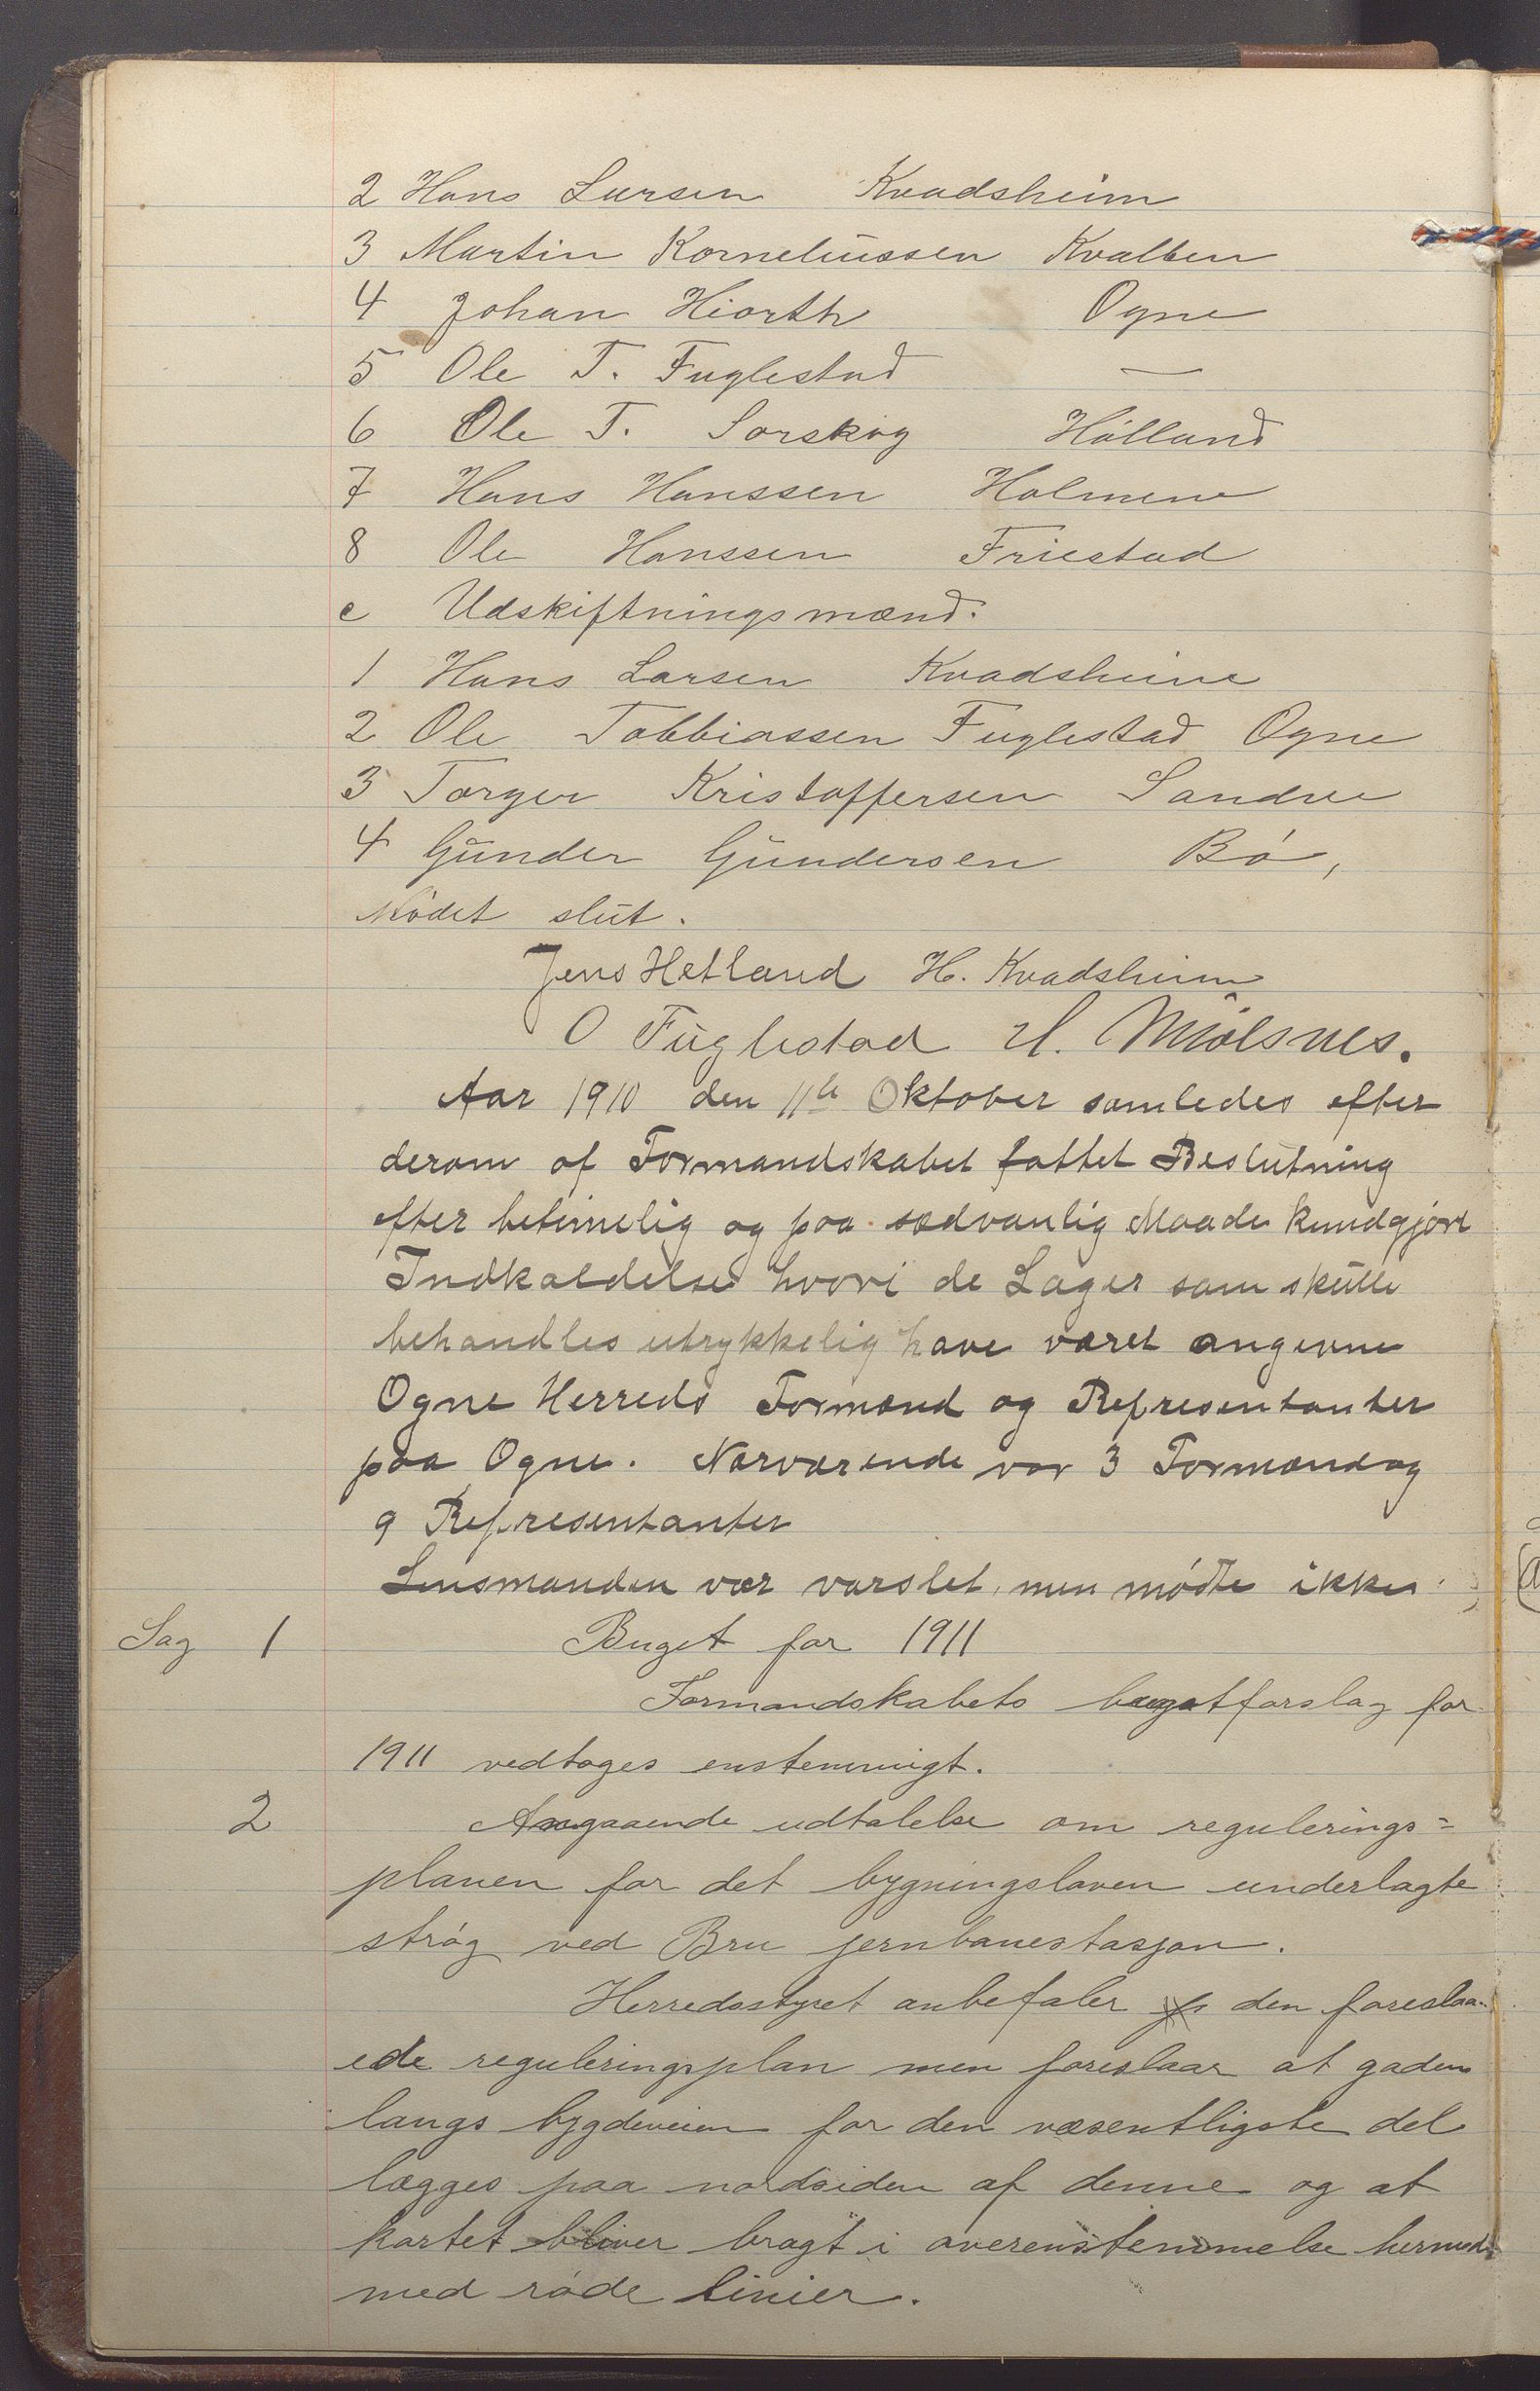 2 Hans Larsen Kvadsheim
3 Martin Korneliussen Kvalben
4 Johan Hiorth Ogne
5 Ole T. Fuglestad —
6 Ole T. Sorskog Hólland
7 Hans Hanssen Holmene
8 Ole Hanssen Friestad
c Udskiftningsmænd.
1 Hans Larsen Kvadsheim
2 Ole Tobbiassen Fuglestad Ogne
3 Torger Kristoffersen Sandve
4 Gunder Gundersen Bó,
Mödet slut.
Jens Hetland H. Kvadsheim
O Fuglestad H. Miólsnes.
Aar 1910 den 11te Oktober samledes efter
derom af Formandskabet fattet Beslutning
efter betimelig og paa sædvanlig Maade kundgjort
Indkaldelse hvori de Sager som skulle
behandles utrykkelig have været angivne
Ogne Herreds Formænd og Representanter
paa Ogne. Nærværende var 3 Formænd og
9 Representanter
Lensmanden var varslet, men mödte ikke.
Sag 1 Buget for 1911
Formandskabets bugetforslag for
1911 vedtoges enstemmigt.
2 Angaaende udtalelse om regulerings=
planen for det bygningsloven underlagte
stróg ved Bru jernbanestasjon.
Herredsstyret anbefaler den foreslaa-
ede reguleringsplan men foreslaar at gaden
langs bygdeveien for den væsentligste del
lægges paa nordsiden af denne og at
kartet bliver bragt i overenstemmelse hermed
med róde linier.